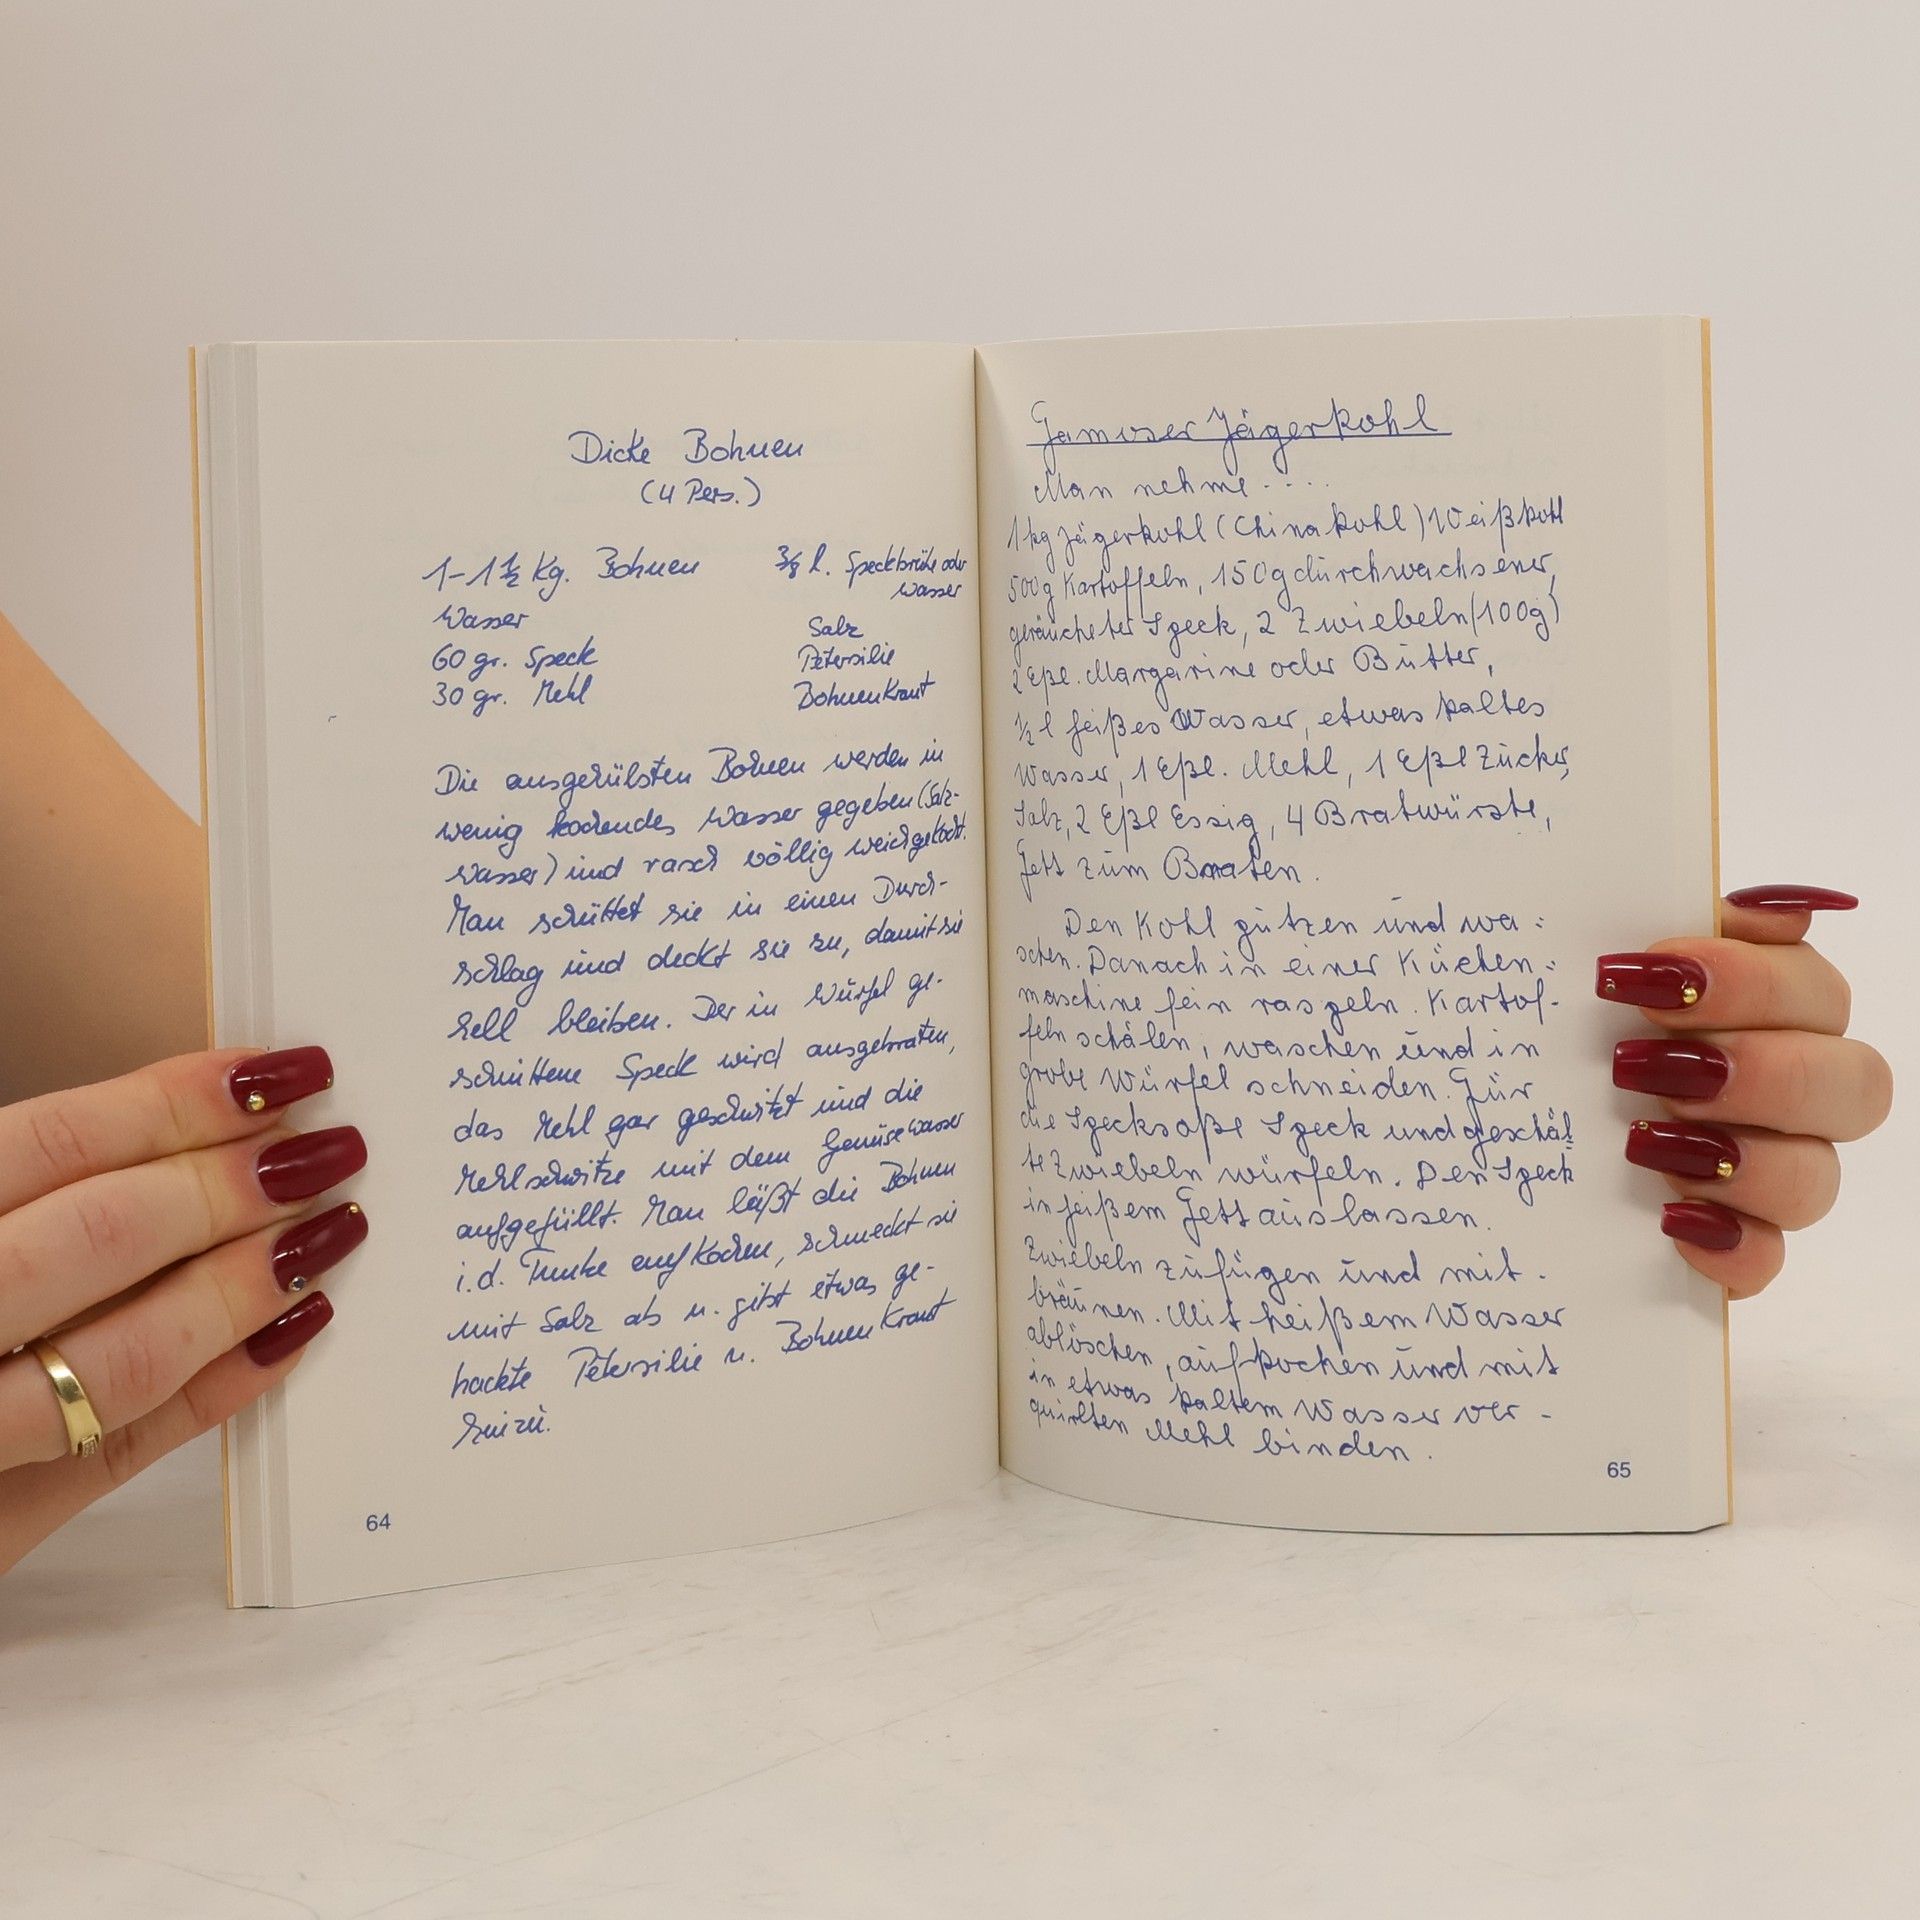 Dicke Bohnen
(4 Pers.)
1-1½ Kg. Bohnen
Wasser
60 gr. Speck
30 gr. Mehl
⅜ l. Speckbrühe oder
Wasser
Salz
Petersilie
BohnenKraut
Die ausgehülsten Bohnen werden in
wenig kochendes Wasser gegeben (Salz-
wasser) und rasch völlig weichgekocht.
Man schüttet sie in einen Durch-
schlag und deckt sie zu, damit sie
hell bleiben. Der in Würfel ge-
schnittene Speck wird ausgebraten,
das Mehl gar geschwitzt und die
Mehlschwitze mit dem Gemüsewasser
aufgefüllt. Man läßt die Bohnen
i.d. Tunke aufkochen, schmeckt sie
mit Salz ab u. gibt etwas ge-
hackte Petersilie u. BohnenKraut
hinzu.
64
Famoser Jägerkohl
Man nehme ....
1kg Jägerkohl (Chinakohl) Weißkohl
500g Kartoffeln, 150g durchwachsener,
geräucheter Speck, 2 Zwiebeln (100g)
2 Eßl. Margarine oder Butter,
½ l heißes Wasser, etwas kaltes
Wasser, 1 Eßl. Mehl, 1 Eßl Zucker,
Salz, 2 Eßl Essig, 4 Bratwürste,
Fett zum Braten.
Den Kohl putzen und wa :
schen. Danach in einer Küchen :
maschine fein raspeln. Kartof-
feln schälen, waschen und in
grobe Würfel schneiden. Für
die Specksoße Speck und geschäl
te Zwiebeln würfeln. Den Speck
in heißem Fett auslassen.
Zwiebeln zufügen und mit.
bräunen. Mit heißem Wasser
ablöschen, aufkochen und mit
in etwas kaltem Wasser ver-
quirlten Mehl binden.
65